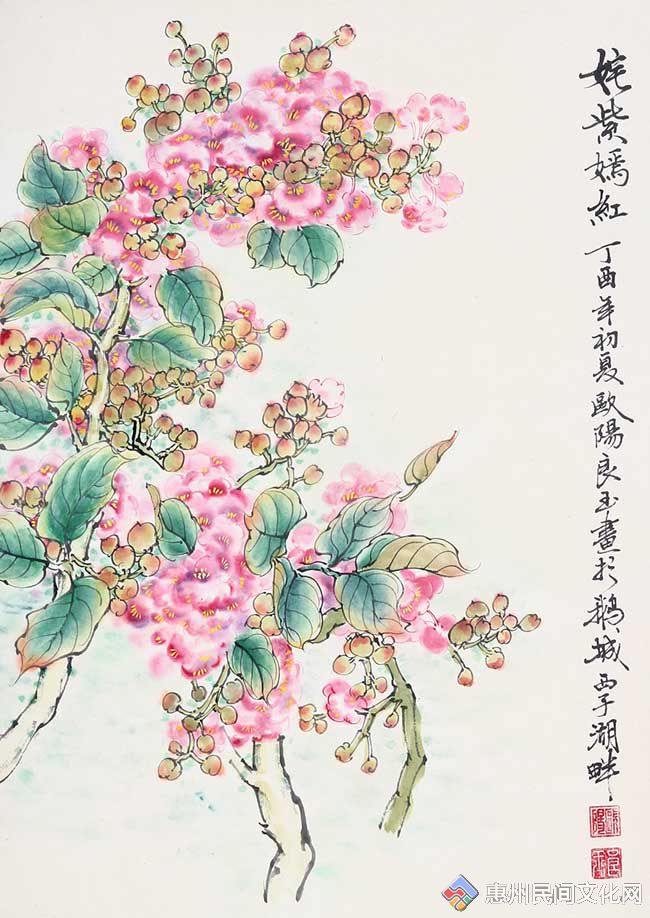 姹紫嫣紅 丁酉年初夏歐陽良玉畫於鵝城西子湖畔
惠州民间文化网